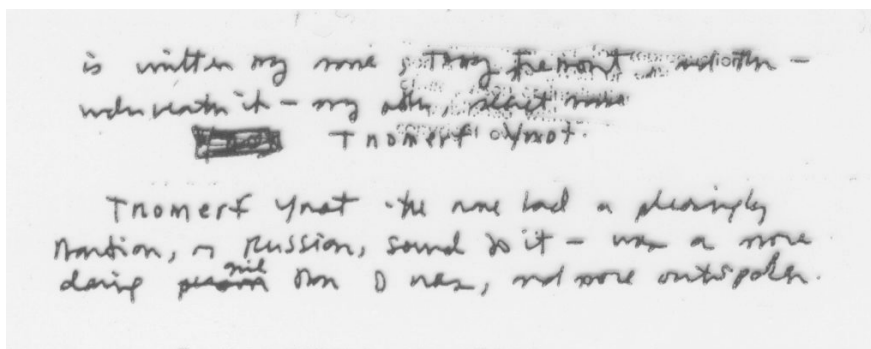 is written my name, Tony Fremont, and then –
underneath it – my other, secret name
Tnomerf Ynot.
Tnomerf Ynot – the name had a pleasingly
Martian, or Russian, sound to it – was a more
daring than I was, and more outspoken.